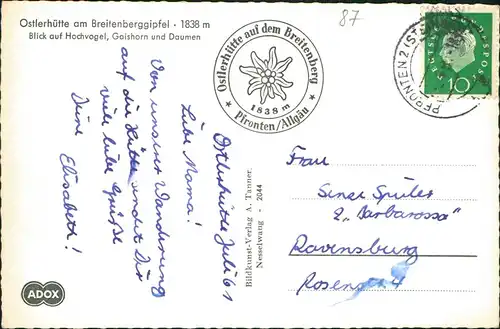 Ostlerhütte am Breitenberggipfel · 1838 m
Blick auf Hochvogel, Gaishorn und Daumen
87
Ostlerhütte auf dem Breitenberg
1838 m
* Pfronten/Allgäu *
PFRONTEN 2 (ST
DEUTSCHE BUNDESPOST
10
Ostlerhütte Juli 61
Liebe Mama!
Von unserer Wanderung
auf die Hütte sendet Dir
viele liebe Grüße
Deine Elisabeth!
Bildkunst-Verlag A. Tanner, Nesselwang - 2044
Frau
Spüler
z. „Barbarossa"
Ravensburg
ADOX